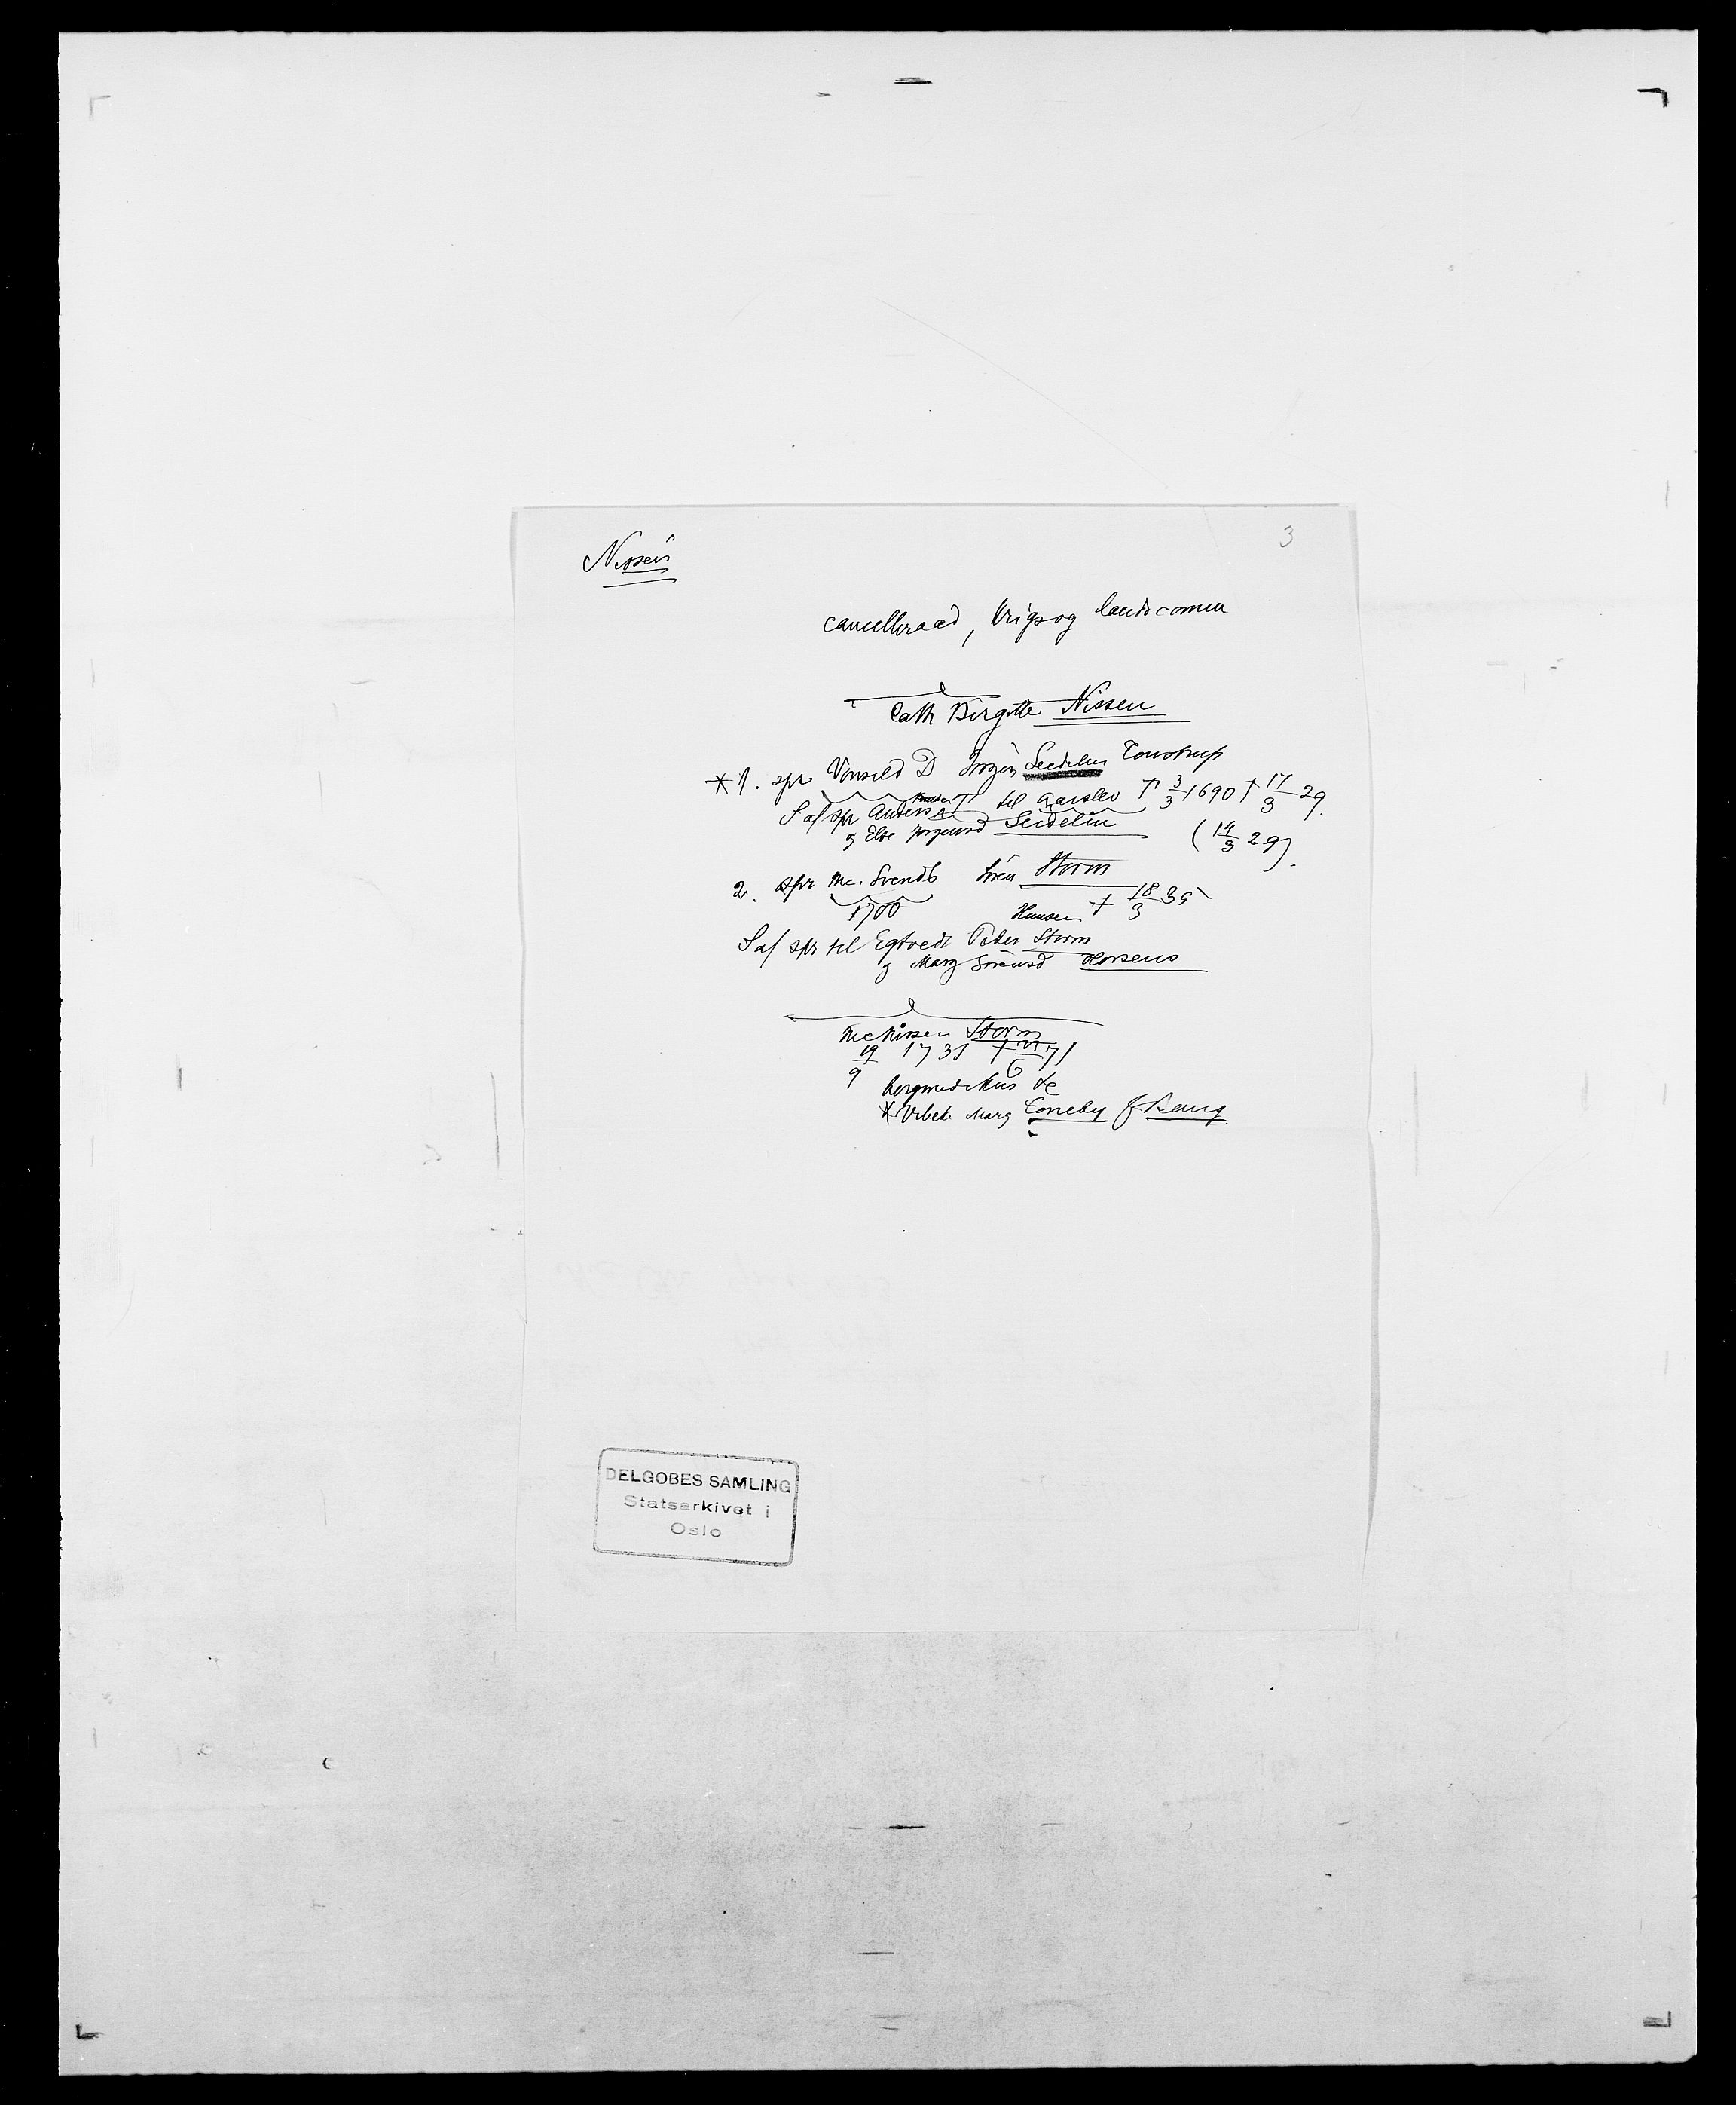 Nissen
3
cancelliraad, krigs og landscomm
Cath Birgitte Nissen
* 1. spr Vonsild D Jørgen Seidelin Tonstrup
S af spr Anders til Gaarslev † 3/3 1690 † 17/3 29.
og Else Jørgensd Seidelin (14/3 29).
2. spr Nic. Svends Søren Storm
1700 † 18/3 35
Hansen
S af spr til Egtved Peder Storm
og Marg Sørensd Horsens
Nic Nissen Storm
19/9 1731 † 71
bergmedikus &c
* Vibeke Marg Torneby f Bang
DELGOBES SAMLING
Statsarkivet i
Oslo